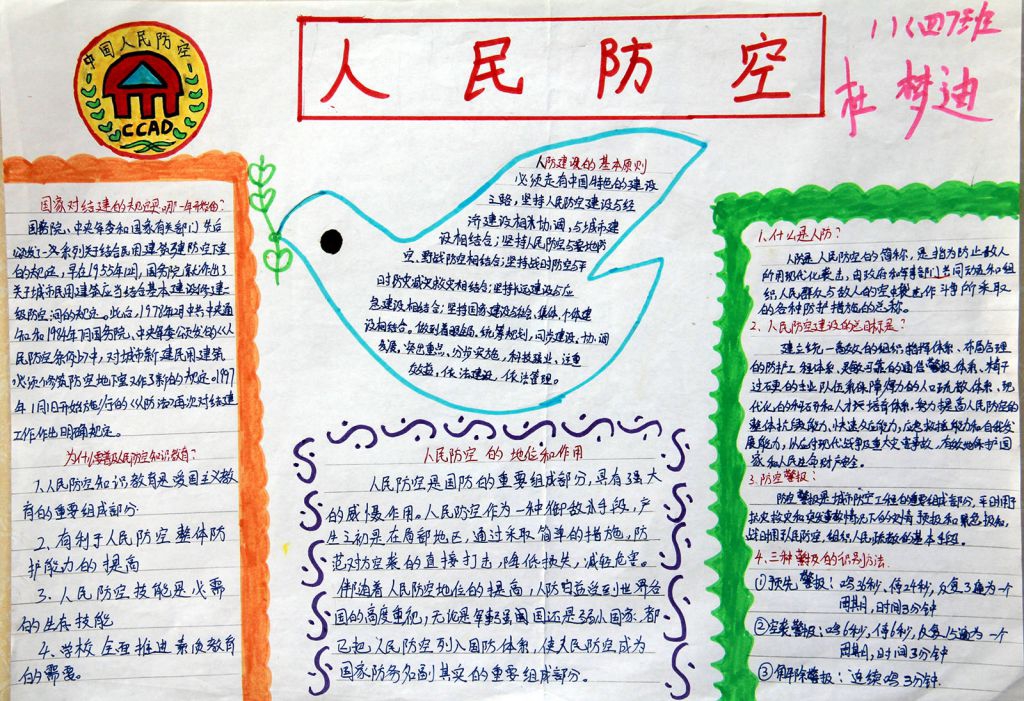 中国人民防空
CCAD
人民防空
八(四)班
杜梦迪
国家对结建的规定哪一年开始的?
国务院、中央军委和国家有关部门先后
颁发了一系列关于结合民用建筑建防空室
的规定,早在1955年
关于城市民用建筑应当结合基本建设修建
级防空洞的规定。此后,1978年
知和1984年
民防空条例》中,对城市新建民用建筑
必须修筑防空地下室又作了新的规定。1997
年1月1日开始施行的《人防法》再次对结建
工作作出明确规定。
为什么要普及人民防空知识教育?
1.人民防空知识教育是爱国主义教
育的重要组成部分.
2、有利于人民防空整体防
护能力的提高
3.人民防空技能是必需
的生存技能
4.学校全面推进素质教育
的需要。
人防建设的基本原则
必须走有中国特色的建设
之路,坚持人民防空建设与经
济建设相协调,与城市建
设相结合;坚持人民防空与要地防
空、野战防空相结合;坚持战时防空与平
时防灾减灾救灾相结合;坚持长远建设与应
急建设相结合;坚持国家建设与社会、集体、个体建
设相结合。做到着眼全局,统筹规划,同步建设,协调
发展,突出重点、分步实施,科技强业、注重
效益,依法建设,依法管理。
人民防空的地位和作用
人民防空是国防的重要组成部分,具有强大
的威慑作用。人民防空作为一种御敌手段,产
生之初是在局部地区,通过采取简单的措施,防
范对空袭的直接打击,降低损失,减轻危害。
伴随着人民防空地位的提高,人防日益受到世界各
国的高度重视,无论是军事强国还是弱小国家,都
已把人民防空列入国防体系,使人民防空成为
国家防务名副其实的重要组成部分。
1.什么是人防?
人防是人民防空的简称,是指为防止敌人
所用现代化袭击,由政府和军事部门共同动员和组
织人民群众与敌人的空中袭击作斗争所采取
的各种防护措施的总称。
2.人民防空建设的总目标是?
建立统一高效的组织指挥体系、布局合理
的防护工程体系、灵敏可靠的通信警报体系、精干
过硬的专业队伍和保障有力的人口疏散体系、现
代化的科研和人才培育体系,努力提高人民防空的
整体抗毁能力、快速反应能力,应急救援能力和自我发
展能力,从应付现代战争及重大灾害事故,有效地保护国
家和人民生命财产安全。
3.防空警报:
防空警报是城市防空工程的重要组成部分,平时用于
抗灾救灾和突发事故情况下的灾情预报和紧急报知,
战时用于人民防空,组织人民疏散的基本手段。
4.三种警报的识别方法
①预先警报:鸣36秒,停24秒,反复3遍为一个
周期,时间3分钟
②空袭警报:鸣6秒,停6秒,反复15遍为一个
周期,时间3分钟
③解除警报:连续鸣3分钟.